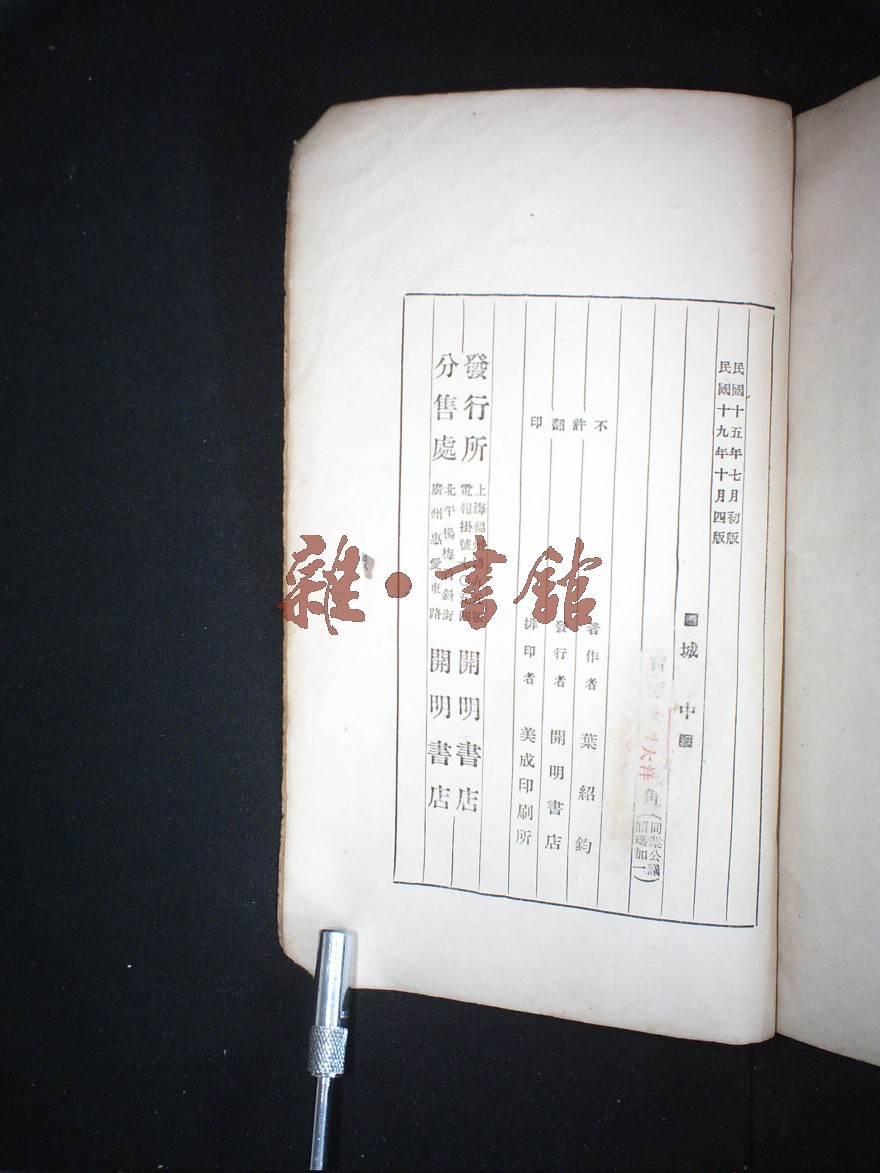 民國十五年七月初版
民國十九年十月四版
城中
大洋
角
(同業公議
碼加一)
不許翻印
著作者 葉紹鈞
發行者 開明書店
排印者 美成印刷所
發行所
上海福
電報掛號
開明書店
分售處
北平楊梅 斜街
廣州惠愛東路
開明書店
雜·書館